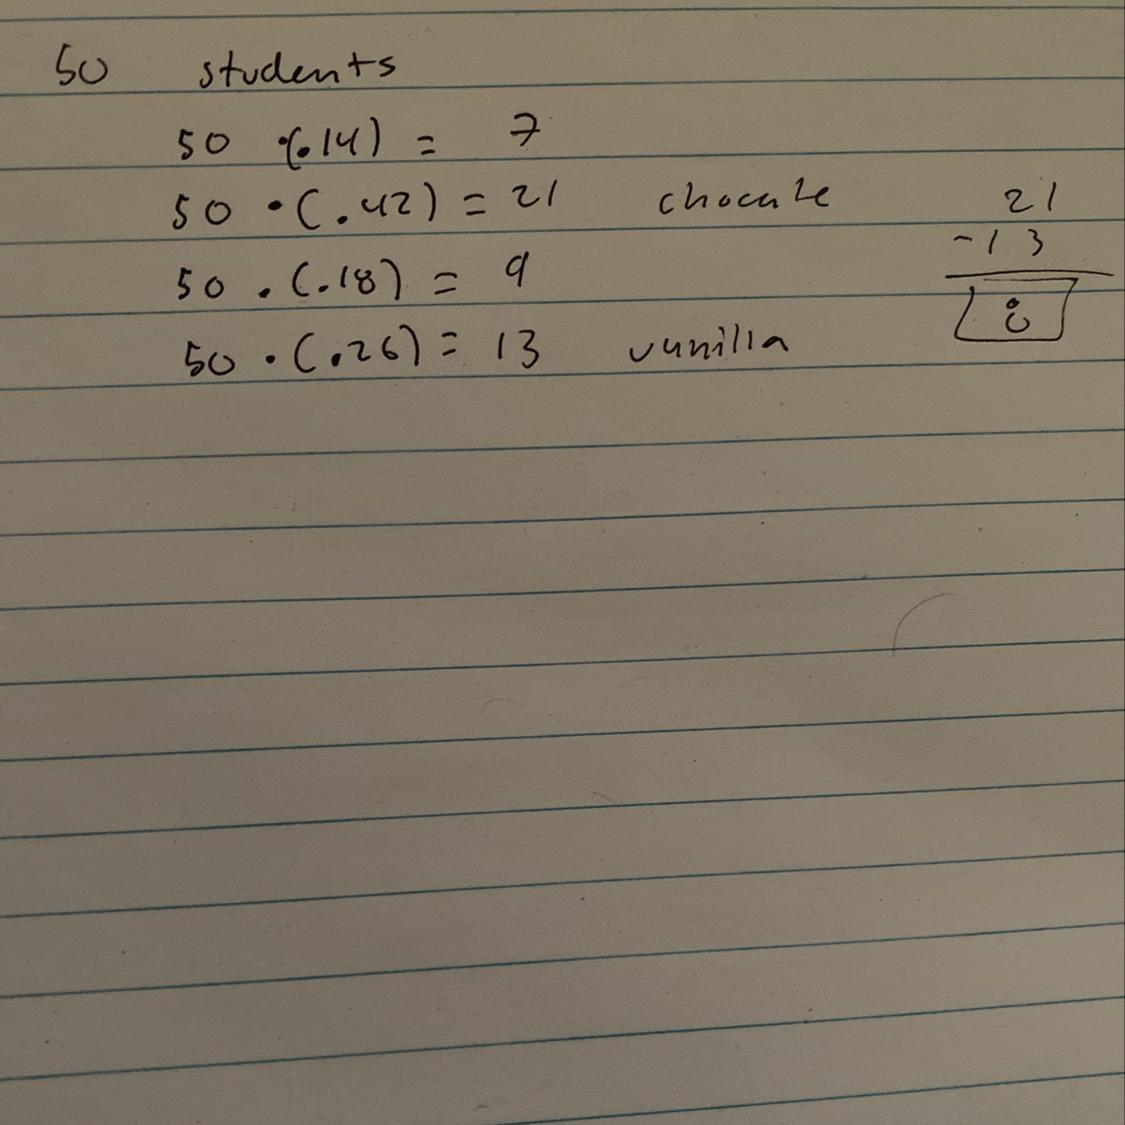 50 students
50 ·(.14) = 7
50 · (.42) = 21 chocate
50 . (.18) = 9
50 · (.26) = 13 vunilla
21
-13
8